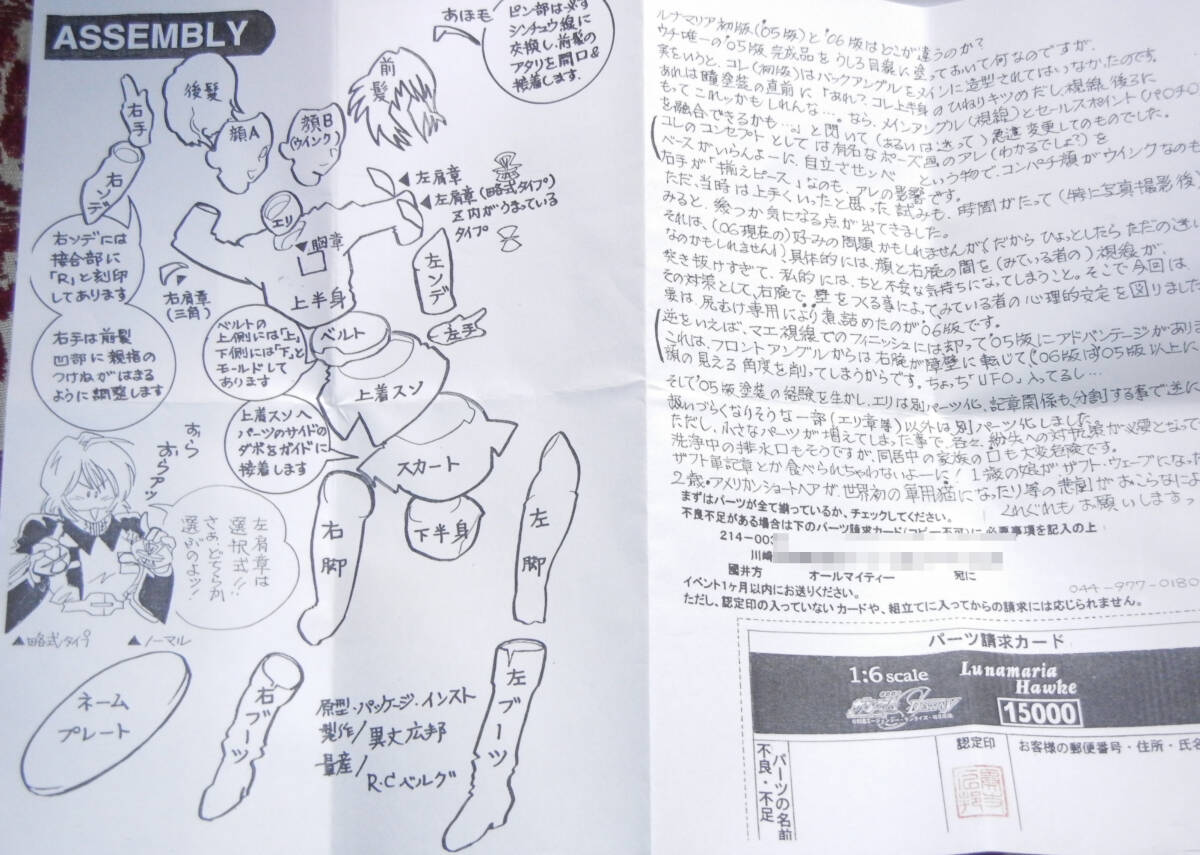 ASSEMBLY
あほ毛
ピン部は必ず
シンチュウ線に
交換し、前髪の
アタリを開口&
接着します.
後髪
前髪
右手
顔A
顔B
(ウインク)
右ソデ
エリ
◀左肩章
◀左肩章(略式タイプ)
区内がうまっている
タイプ
▼胸章
右ソデには
接合部に
「R」と刻印
してあります
右肩章
(三角)
上半身
左ソデ
左手
右手は前髪
凹部に親指の
つけねがはまる
ように調整します
ベルトの
上側には「上」
下側には「下」と
モールドして
あります
ベルト
上着スソ
上着スソへ
パーツのサイドの
ダボをガイドに
接着します
スカート
ずら
ずらアッ
左肩章は
選択式!!
さあ、どちらか
選ぶのよッ!
▲略式タイプ
▲ノーマル
右脚
下半身
左脚
ネーム
プレート
右ブーツ
左ブーツ
原型・パッケージ・インスト
製作/異丈広邦
量産/
R・Cベルグ
ルナマリア初版('05版)と'06版はどこが違うのか?
ウチ唯一の'05版完成品をうしろ目線に塗っておいて何なのですが、
実をいうと、コレ(初版)はバックアングルをメインに造型されてはいなかったのです。
あれは瞳塗装の直前に「あれ?コレ上半身のひねりキツめだし、視線後ろに
もってこれッかもしれんな…。なら、メインアングル(視線)とセールスポイント(パロチロ
を融合できるかも…。」と閃いて(あるいは迷って)急遽変更してのものでした。
コレのコンセプトとしては有名なポーズ画のアレ(わかるでしょ?)を
ベースがいらんよーに、自立させンべ という物で、コンパチ顔がウインクなのも
右手が「揃えピース」なのも、アレの影響です。
ただ、当時は上手くいったと思った試みも、時間がたって(特に写真撮影後)
みると、幾つか気になる点が出てきました。
それは、('06現在の)好みの問題かもしれませんが(だから ひょっとしたら ただの迷い
なのかもしれません)、具体的には、顔と右腕の間を(みている者の)視線が、
突き抜けすぎて、私的には、ちと不安な気持ちになってしまうこと。そこで今回は
その対策として、右腕で壁をつくる事によってみている者の心理的安定を図りました
要は尻むけ専用により煮詰めたのが'06版です。
逆をいえば、マエ視線でのフィニッシュには却って'05版にアドバンテージがあり
これは、フロントアングルからは右腕が障壁に転じて、'06版は'05版以上に
顔の見える角度を削ってしまうからです。ちょっち「UFO」入ってるし…
そして'05版塗装の経験を生かし、エリは別パーツ化、記章関係も分割する事で逆に
扱いづらくなりそうな一部(エリ章等)以外は別パーツ化しました。
ただし、小さなパーツが増えてしまった事で、各々、紛失への対抗策が必要となって
洗浄中の排水口もそうですが、同居中の家族の口も大変危険です。
ザフト軍記章とか食べられちゃわないよーに!1歳の娘がザフト・ウェーブになった
2歳・アメリカンショートヘアが、世界初の軍用猫になったり等の悲劇がおこらなによ
くれぐれもお願いしますっ
まずはパーツが全て揃っているか、チェックしてください。
不良不足がある場合は下のパーツ請求カード(コピー不可)に必要事項を記入の上
214-003
川崎
國井方 オールマイティー 宛に
イベント1ヶ月以内にお送りください。
044-977-0180
ただし、認定印の入っていないカードや、組立てに入ってからの請求には応じられません。
パーツ請求カード
1:6 scale
Lunamaria
Hawke
15000
パーツの名前
不良・不足
認定印
お客様の郵便番号・住所・氏名